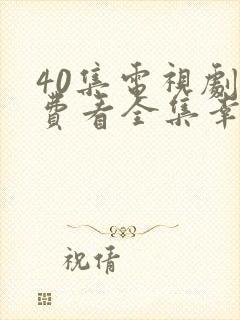 40集電視劇
費看全集幸
祝倩